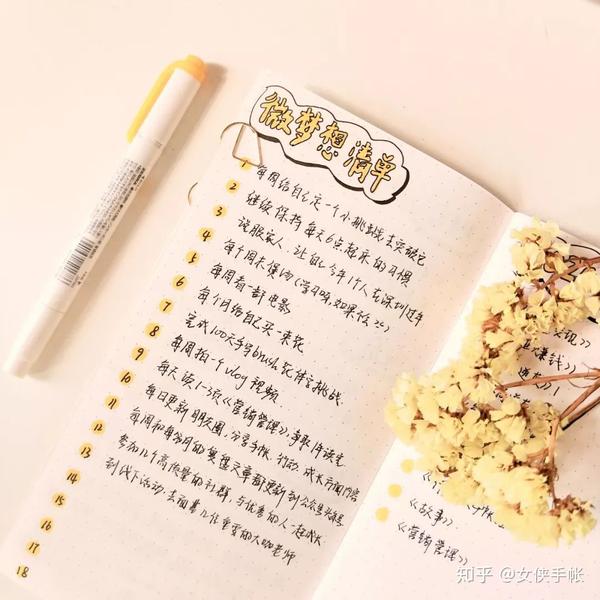 微梦想清单
1 每周给自己定一个小挑战去突破它
2 继续保持每天6点起床的习惯
3 说服家人,让自己今年1个人去深圳过年
4 每个周末煲汤(学习呀,如果你
5 每周看一部电影
6 每个月给自己买一束花
7 完成100天手写brush花体字挑战.
8 每周拍一个vlog视频.
9 每天读1-3页《营销管理》,争取1年读完
10 每日更新朋友圈,分享手帐、行动、成长方面内容
11 每周和每月的奥德文章都更新到公众号头条号
12 参加几个高质量的社群,与优秀的人一起成长
13 到线下活动,去面基几位重要的大咖老师
14
15
16
17
18
《故事》
《营销管理》
知乎 @女侠手帐